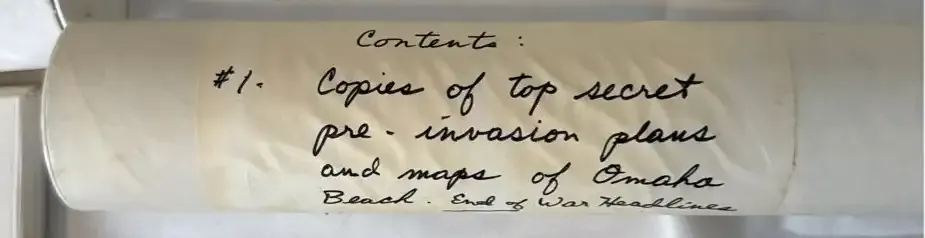 Contents :
#1. Copies of top secret
pre - invasion plans
and maps of Omaha
Beach. End of War Headlines